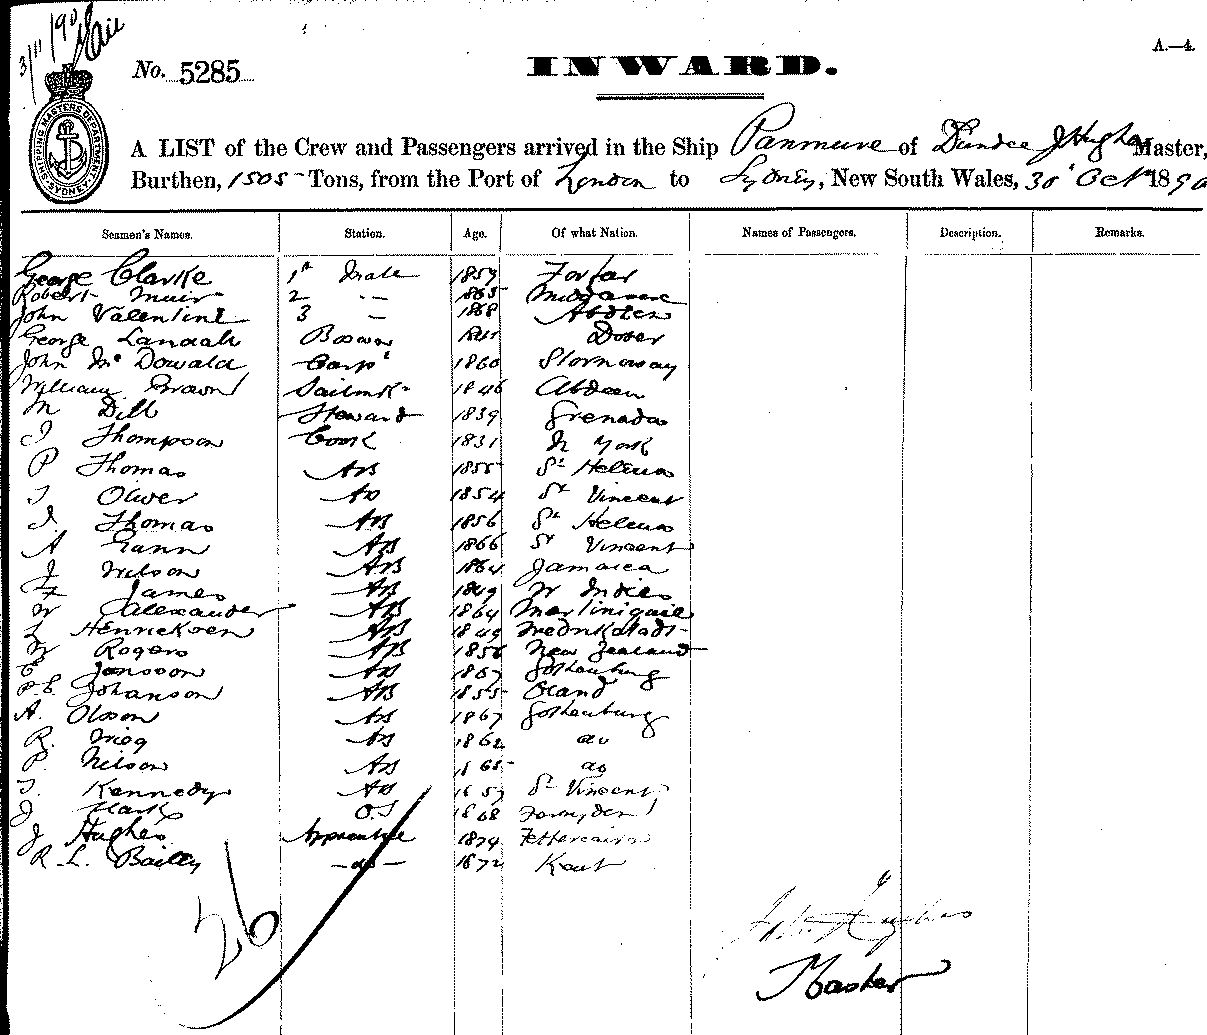 31/1/90
A.—4.
No. 5285
INWARD.
SHIPPING MASTERS DEPARTMENT SYDNEY
A LIST of the Crew and Passengers arrived in the Ship Panmure of Dundee J Hughes Master,
Burthen, 1505 Tons, from the Port of London to Sydney, New South Wales, 30 Oct 1890
Seamen's Names. Station. Age. Of what Nation. Names of Passengers. Description. Remarks.
George Clarke 1st Mate 1859 Forfar
Robert Muir 2 " 1865
John Valentine 3 — 1868 Abdeen
George Bosun Dover
John Mc Dowald Carpr 1860 Stornoway
William Brown Sailmkr 1846 Abdeen
M Dill Steward 1839 Grenada
J Thompson Cook 1831 N York
P Thomas AB 1855 St Helena
J Oliver AB 1854 St Vincent
J. Thomas AB 1856 St Helena
A AB 1866 St Vincent
J Wilson AB 1864 Jamaica
James AB 1849 W Indies
W Alexander AB 1864 Martiniquie
L Henricksen AB 1849
W Rogers AB 1856 New Zealand
C Jonsson AB 1867 Gothenburg
P.E. Johanson AB 1855 Oland
A. Olsson AB 1867 Gothenburg
R. AB 1862 do
P. Nilson AB 1865 do
J. Kennedy AB 1857 St Vincent
J Clark O.S 1868
J Hughes Apprentice 1874 Fettercairn
R. L. Bailly —do— 1872 Kent
26
John Hughes
Master